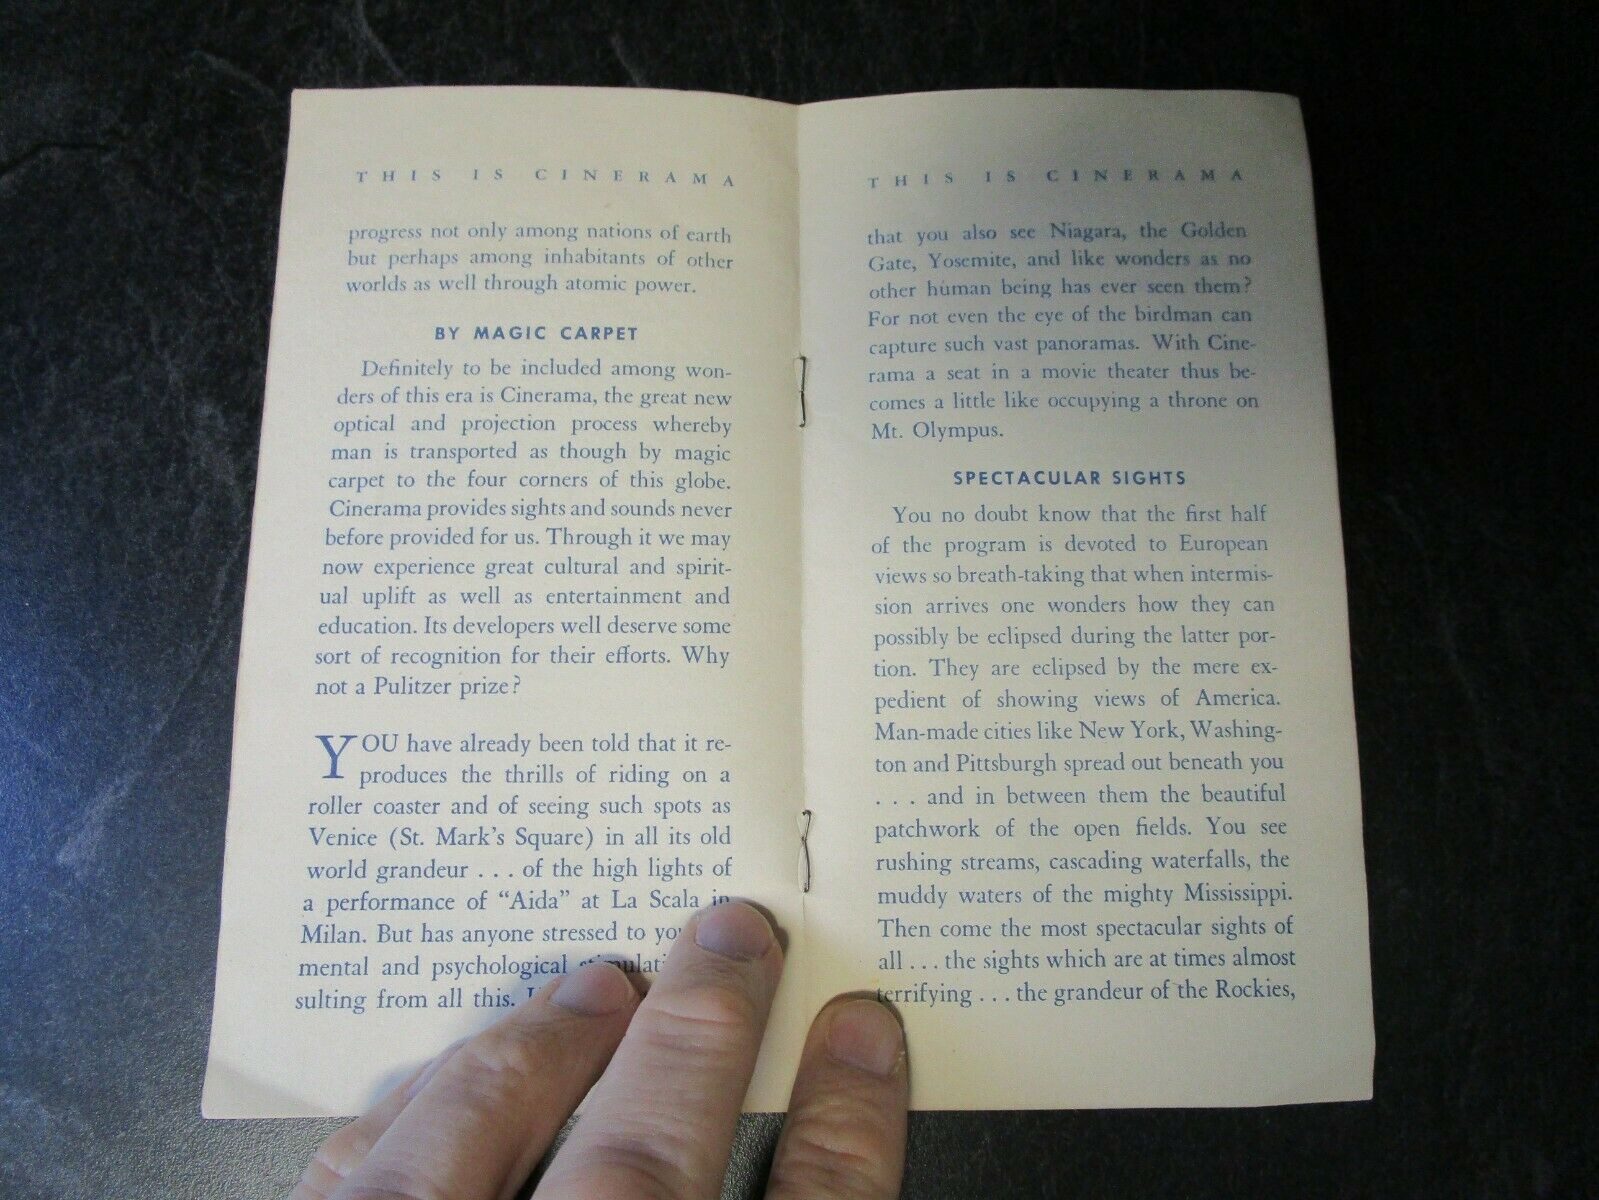 THIS IS CINERAMA
progress not only among nations of earth
but perhaps among inhabitants of other
worlds as well through atomic power.
BY MAGIC CARPET
Definitely to be included among won-
ders of this era is Cinerama, the great new
optical and projection process whereby
man is transported as though by magic
carpet to the four corners of this globe.
Cinerama provides sights and sounds never
before provided for us. Through it we may
now experience great cultural and spirit-
ual uplift as well as entertainment and
education. Its developers well deserve some
sort of recognition for their efforts. Why
not a Pulitzer prize?
YOU have already been told that it re-
produces the thrills of riding on a
roller coaster and of seeing such spots as
Venice (St. Mark's Square) in all its old
world grandeur . . . of the high lights of
a performance of "Aida" at La Scala in
Milan. But has anyone stressed to
mental and psychological
sulting from all this.
THIS IS CINERAMA
that you also see Niagara, the Golden
Gate, Yosemite, and like wonders as no
other human being has ever seen them?
For not even the eye of the birdman can
capture such vast panoramas. With Cine-
rama a seat in a movie theater thus be-
comes a little like occupying a throne on
Mt. Olympus.
SPECTACULAR SIGHTS
You no doubt know that the first half
of the program is devoted to European
views so breath-taking that when intermis-
sion arrives one wonders how they can
possibly be eclipsed during the latter por-
tion. They are eclipsed by the mere ex-
pedient of showing views of America.
Man-made cities like New York, Washing-
ton and Pittsburgh spread out beneath you
. . . and in between them the beautiful
patchwork of the open fields. You see
rushing streams, cascading waterfalls, the
muddy waters of the mighty Mississippi.
Then come the most spectacular sights of
all . . . the sights which are at times almost
terrifying . . . the grandeur of the Rockies,